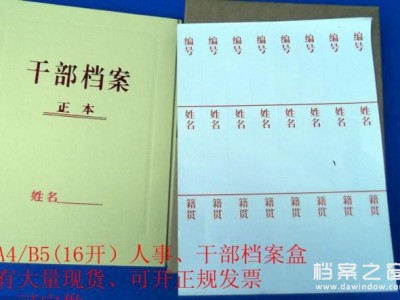 干部档案
正本
姓名
编号 编号 编号 编号 编号 编号 编号 编号
姓名 姓名 姓名 姓名 姓名 姓名 姓名 姓名
籍贯 籍贯 籍贯 籍贯 籍贯 籍贯 籍贯 籍贯
A4/B5(16开）人事、干部档案盒
有大量现货、可开正规发票
档案之窗
www.dawindow.com